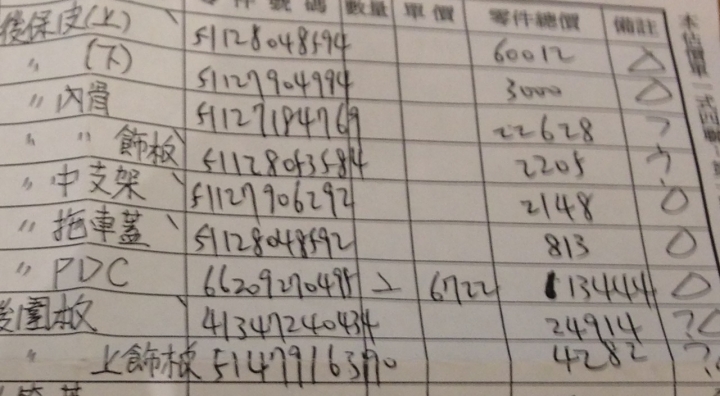 零件號碼 數量 單價 零件總價 備註
後保皮(上) 51128048594 60012 △
〃 (下) 51127904994 3000 △
〃 內骨 51127184769 22628 ?
〃 〃 飾板 51128053584 2205 ?
〃 中支架 51127906292 2148 O
〃 拖車蓋 51128048592 813 O
〃 PDC 66209270495 2 6722 13444 △
後圍板 41347240434 24914 ?
〃 上飾板 51479116390 4282 ?
本估價單一式四聯